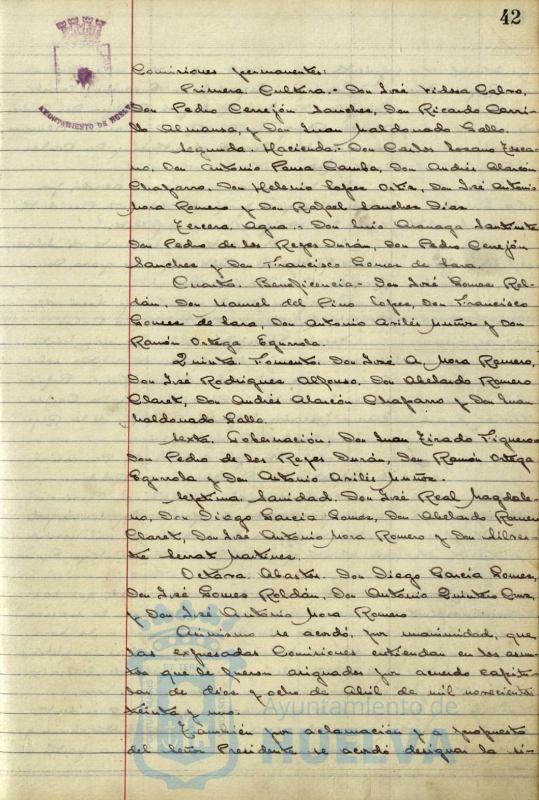 42
AYUNTAMIENTO DE HUELVA
Comisiones permanentes:
Primera. Cultura.- Don José Vidosa Calvo,
Don Pedro Cerrejón Sanchez, Don Ricardo Carri-
llo Almansa, y Don Juan Maldonado Gallo.
Segunda. Hacienda.- Don Carlos Lozano
Don Antonio Ponsa Camba, Don Andrés Alarcón
Chaparro, Don Heleno Lopez Ortiz, Don José Antonio
Mora Romero y Don Rafael Sanchez Diaz
Tercera. Agua.- Don Luis Aranaga
Don Pedro de los Reyes Durán, Don Pedro Cerrejón
Sanchez y Don Francisco Gomez de Lara.
Cuarta. Beneficencia.- Don José Gomez Rol-
dán, Don Manuel del Pino Lopez, Don Francisco
Gomez de Lara, Don Antonio Avilés Muñoz y Don
Ramón Ortega Egurrola.
Quinta. Fomento. Don José A. Mora Romero,
Don José Rodriguez Alfonso, Don Abelardo Romero
Claret, Don Andrés Alarcón Chaparro y Don Juan
Maldonado Gallo.
Sexta. Gobernación. Don Juan Tirado Figueroa
Don Pedro de los Reyes Durán, Don Ramón Ortega
Egurrola y Don Antonio Avilés Muñoz.
Septima. Sanidad. Don José Real Magdale-
no, Don Diego Garcia Gomez, Don Abelardo Romero
Claret, Don José Antonio Mora Romero y Don Silves-
tre Serrat Martinez.
Octava. Abastos. Don Diego Garcia Gomez,
Don José Gomez Roldán, Don Antonio Quintero Cruz
y Don José Antonio Mora Romero
Asimismo se acordó, por unanimidad, que
las expresadas Comisiones entiendan en los asun-
tos que le fueron asignados por acuerdo capitu-
lar de diez y ocho de Abril de mil novecientos
treinta y uno.
También por aclamación y a propuesta
del Señor Presidente se acordó designar la si-
Ayuntamiento de
HUELVA